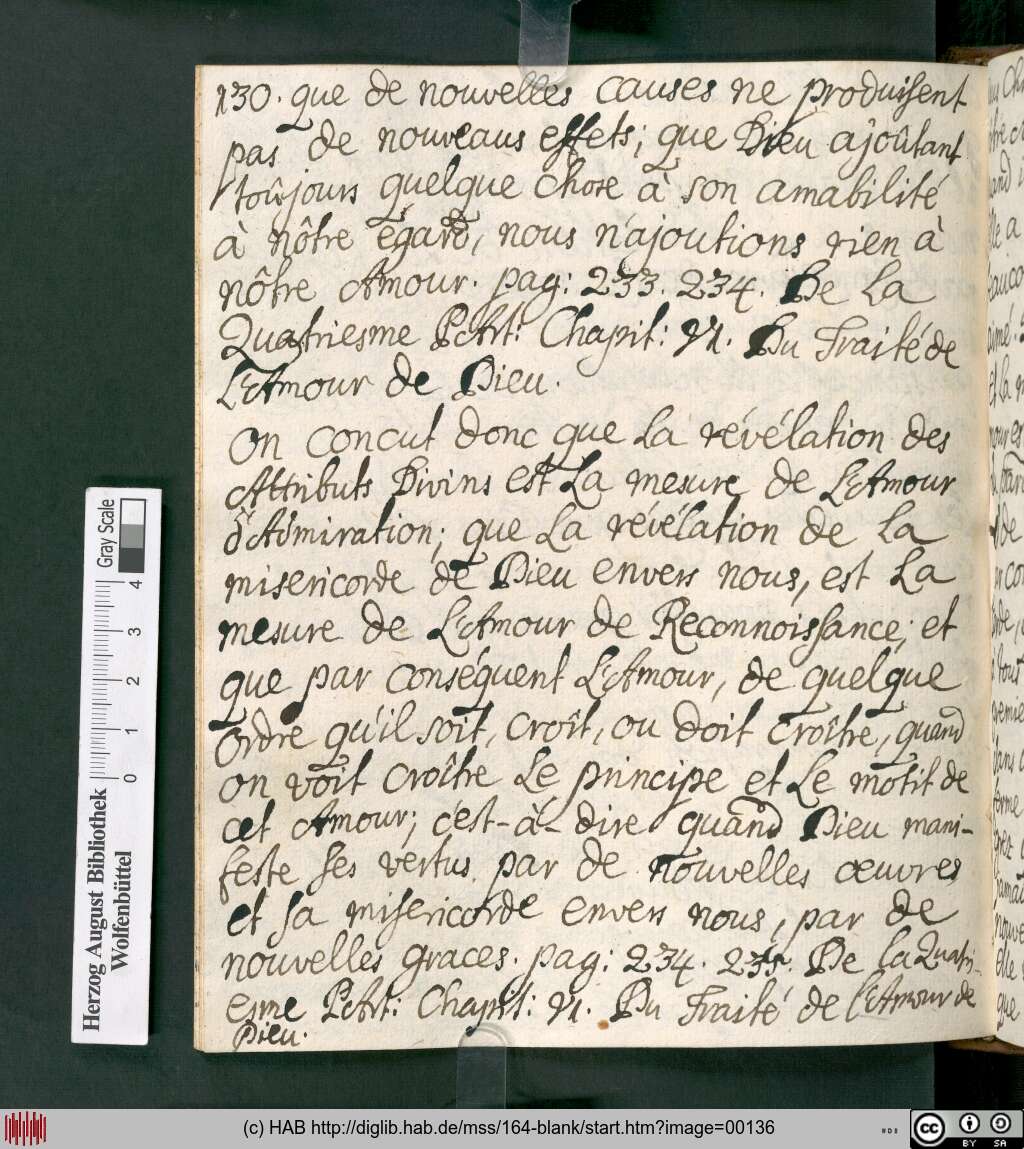 130. que de nouvelles causes ne produisent
pas de nouveaus effets; que Dieu ajoûtant
toûjours quelque chose à son amabilité
à nôtre égard, nous n'ajoutions rien à
nôtre Amour. pag: 233. 234. De La
Quatriesme Part: Chapit: VI. Du Traité de
L'Amour de Dieu.
On concut donc que La révélation des
Attributs Divins est La mesure de L'Amour
d'Admiration; que La révélation de La
misericorde de Dieu envers nous, est La
mesure de L'Amour de Reconnoissance; et
que par conséquent L'Amour, de quelque
Ordre qu'il soit, croît, ou doit croître, quand
on voit croître Le principe et Le motif de
cet Amour; c'est-à-dire quand Dieu mani-
feste ses vertus par de nouvelles œuvres
et sa misericorde envers nous, par de
nouvelles graces. pag: 234. 235. De la Quatri-
esme Part: Chapit: VI. Du Traite de l'Amour de
Dieu.
Gray Scale
0 1 2 3 4
Herzog August Bibliothek
Wolfenbüttel
(c) HAB http://diglib.hab.de/mss/164-blank/start.htm?image=00136
cc BY SA